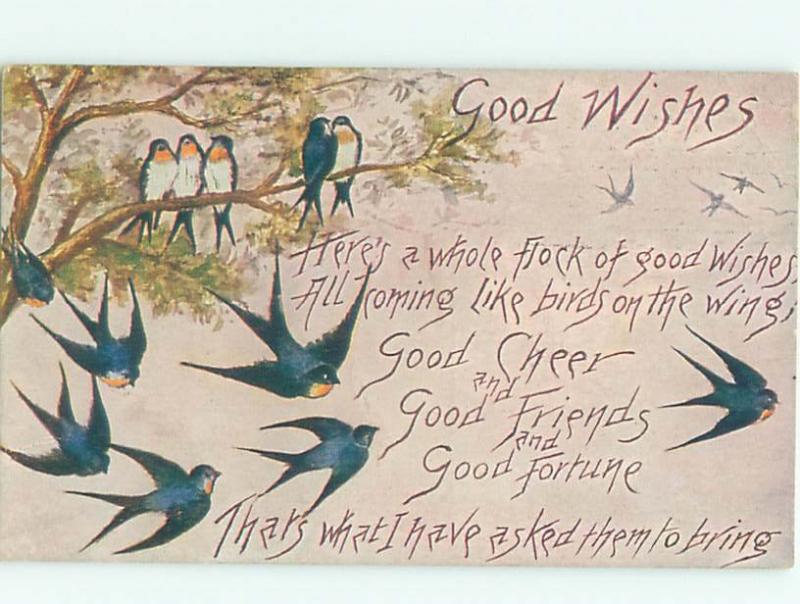 Good Wishes
Here's a whole flock of good Wishes,
All coming like birds on the wing;
Good Cheer
and
Good Friends
and
Good Fortune
That's what I have asked them to bring